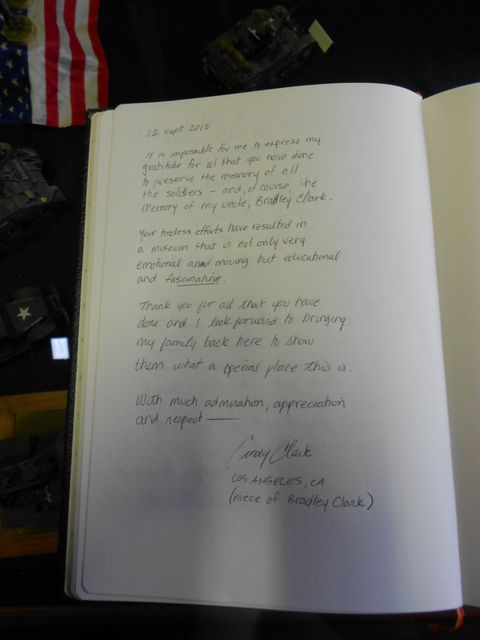 22 Sept 2012
It is impossible for me to express my
gratitude for all that you have done
to preserve the memory of all
the soldiers - and, of course, the
memory of my uncle, Bradley Clark.
Your tireless efforts have resulted in
a museum that is not only very
emotional and moving but educational
and fascinating.
Thank you for all that you have
done and I look forward to bringing
my family back here to show
them what a special place this is.
With much admiration, appreciation
and respect —
Cindy Clark
LOS ANGELES, CA
(niece of Bradley Clark)